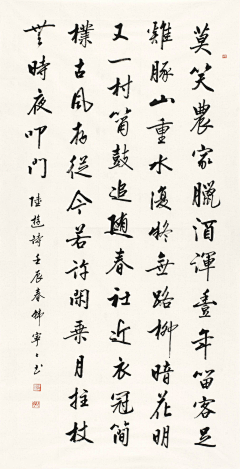 莫笑農家臘酒渾豐年留客足
雞豚山重水復疑無路柳暗花明
又一村簫鼓追隨春社近衣冠簡
樸古風存從今若許閑乘月拄杖
無時夜叩門
陸遊詩壬辰春